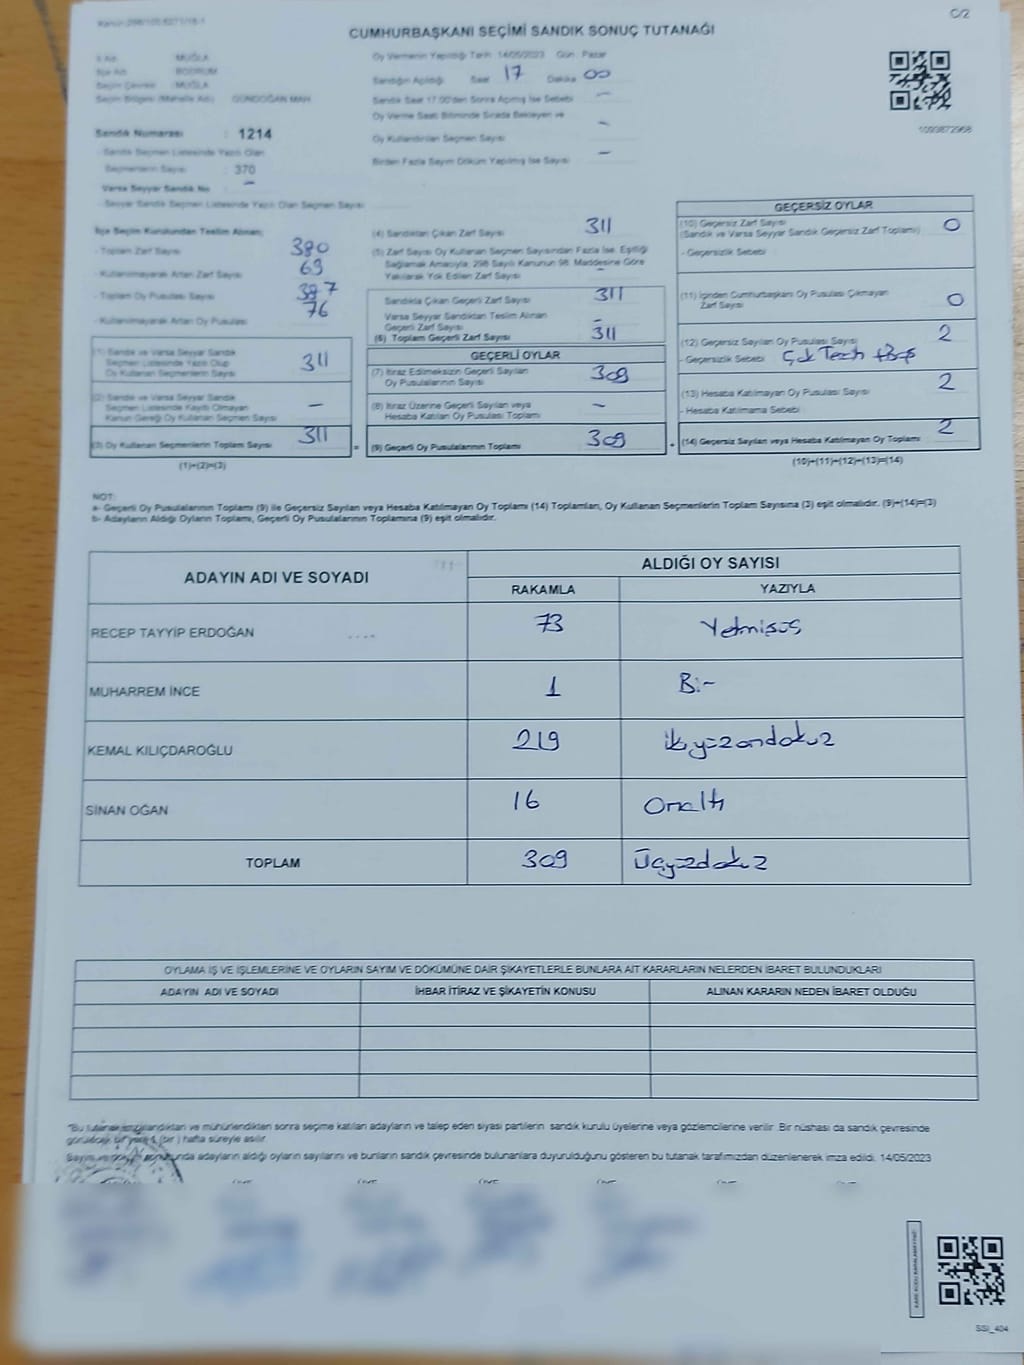 Kanun:298/105,6271/16-1
C/2
CUMHURBAŞKANI SEÇİMİ SANDIK SONUÇ TUTANAĞI
İl Adı : MUĞLA
İlçe Adı : BODRUM
Seçim Çevresi : MUĞLA
Seçim Bölgesi (Mahalle Adı) : GÜNDOĞAN MAH.
Sandık Numarası : 1214
- Sandık Seçmen Listesinde Yazılı Olan
Seçmenlerin Sayısı : 370
Varsa Seyyar Sandık No : –
- Seyyar Sandık Seçmen Listesinde Yazılı Olan Seçmen Sayısı
Oy Vermenin Yapıldığı Tarih: 14/05/2023 Gün : Pazar
Sandığın Açıldığı Saat 17 Dakika 00
Sandık Saat 17:00'den Sonra Açılmış İse Sebebi –
Oy Verme Saati Bitiminde Sırada Bekleyen ve
Oy Kullandırılan Seçmen Sayısı –
Birden Fazla Sayım Döküm Yapılmış İse Sayısı –
1093872968
İlçe Seçim Kurulundan Teslim Alınan;
- Toplam Zarf Sayısı 380
- Kullanılmayarak Artan Zarf Sayısı 69
- Toplam Oy Pusulası Sayısı 387
- Kullanılmayarak Artan Oy Pusulası 76
(1) Sandık ve Varsa Seyyar Sandık
Seçmen Listesinde Yazılı Olup
Oy Kullanan Seçmenlerin Sayısı 311
(2) Sandık ve Varsa Seyyar Sandık
Seçmen Listesinde Kayıtlı Olmayan
Kanun Gereği Oy Kullanan Seçmen Sayısı –
(3) Oy Kullanan Seçmenlerin Toplam Sayısı 311
(1)+(2)=(3)
=
(4) Sandıktan Çıkan Zarf Sayısı 311
(5) Zarf Sayısı Oy Kullanan Seçmen Sayısından Fazla İse, Eşitliği
Sağlamak Amacıyla, 298 Sayılı Kanunun 98. Maddesine Göre
Yakılarak Yok Edilen Zarf Sayısı –
Sandıkta Çıkan Geçerli Zarf Sayısı 311
Varsa Seyyar Sandıktan Teslim Alınan
Geçerli Zarf Sayısı –
(6) Toplam Geçerli Zarf Sayısı 311
GEÇERLİ OYLAR
(7) İtiraz Edilmeksizin Geçerli Sayılan
Oy Pusulalarının Sayısı 309
(8) İtiraz Üzerine Geçerli Sayılan veya
Hesaba Katılan Oy Pusulası Toplamı –
(9) Geçerli Oy Pusulalarının Toplamı 309
+
GEÇERSİZ OYLAR
(10) Geçersiz Zarf Sayısı 0
(Sandık ve Varsa Seyyar Sandık Geçersiz Zarf Toplamı)
- Geçersizlik Sebebi
(11) İçinden Cumhurbaşkanı Oy Pusulası Çıkmayan
Zarf Sayısı 0
(12) Geçersiz Sayılan Oy Pusulası Sayısı 2
- Geçersizlik Sebebi
(13) Hesaba Katılmayan Oy Pusulası Sayısı 2
- Hesaba Katılmama Sebebi
(14) Geçersiz Sayılan veya Hesaba Katılmayan Oy Toplamı 2
(10)+(11)+(12)+(13)=(14)
NOT:
a- Geçerli Oy Pusulalarının Toplamı (9) ile Geçersiz Sayılan veya Hesaba Katılmayan Oy Toplamı (14) Toplamları, Oy Kullanan Seçmenlerin Toplam Sayısına (3) eşit olmalıdır. (9)+(14)=(3)
b- Adayların Aldığı Oyların Toplamı, Geçerli Oy Pusulalarının Toplamına (9) eşit olmalıdır.
ADAYIN ADI VE SOYADI
ALDIĞI OY SAYISI
RAKAMLA YAZIYLA
RECEP TAYYİP ERDOĞAN 73 Yetmişüç
MUHARREM İNCE 1 Bir
KEMAL KILIÇDAROĞLU 219 ikiyüzondokuz
SİNAN OĞAN 16 Onaltı
TOPLAM 309 Üçyüzdokuz
OYLAMA İŞ VE İŞLEMLERİNE VE OYLARIN SAYIM VE DÖKÜMÜNE DAİR ŞİKAYETLERLE BUNLARA AİT KARARLARIN NELERDEN İBARET BULUNDUKLARI
ADAYIN ADI VE SOYADI İHBAR İTİRAZ VE ŞİKAYETİN KONUSU ALINAN KARARIN NEDEN İBARET OLDUĞU
*Bu tutanak imzalandıktan ve mühürlendikten sonra seçime katılan adayların ve talep eden siyasi partilerin sandık kurulu üyelerine veya gözlemcilerine verilir. Bir nüshası da sandık çevresinde
görülecek bir yere 1 (bir ) hafta süreyle asılır.
Sayım ve döküm sonucunda adayların aldığı oyların sayılarını ve bunların sandık çevresinde bulunanlara duyurulduğunu gösteren bu tutanak tarafımızdan düzenlenerek imza edildi. 14/05/2023
SSI_404